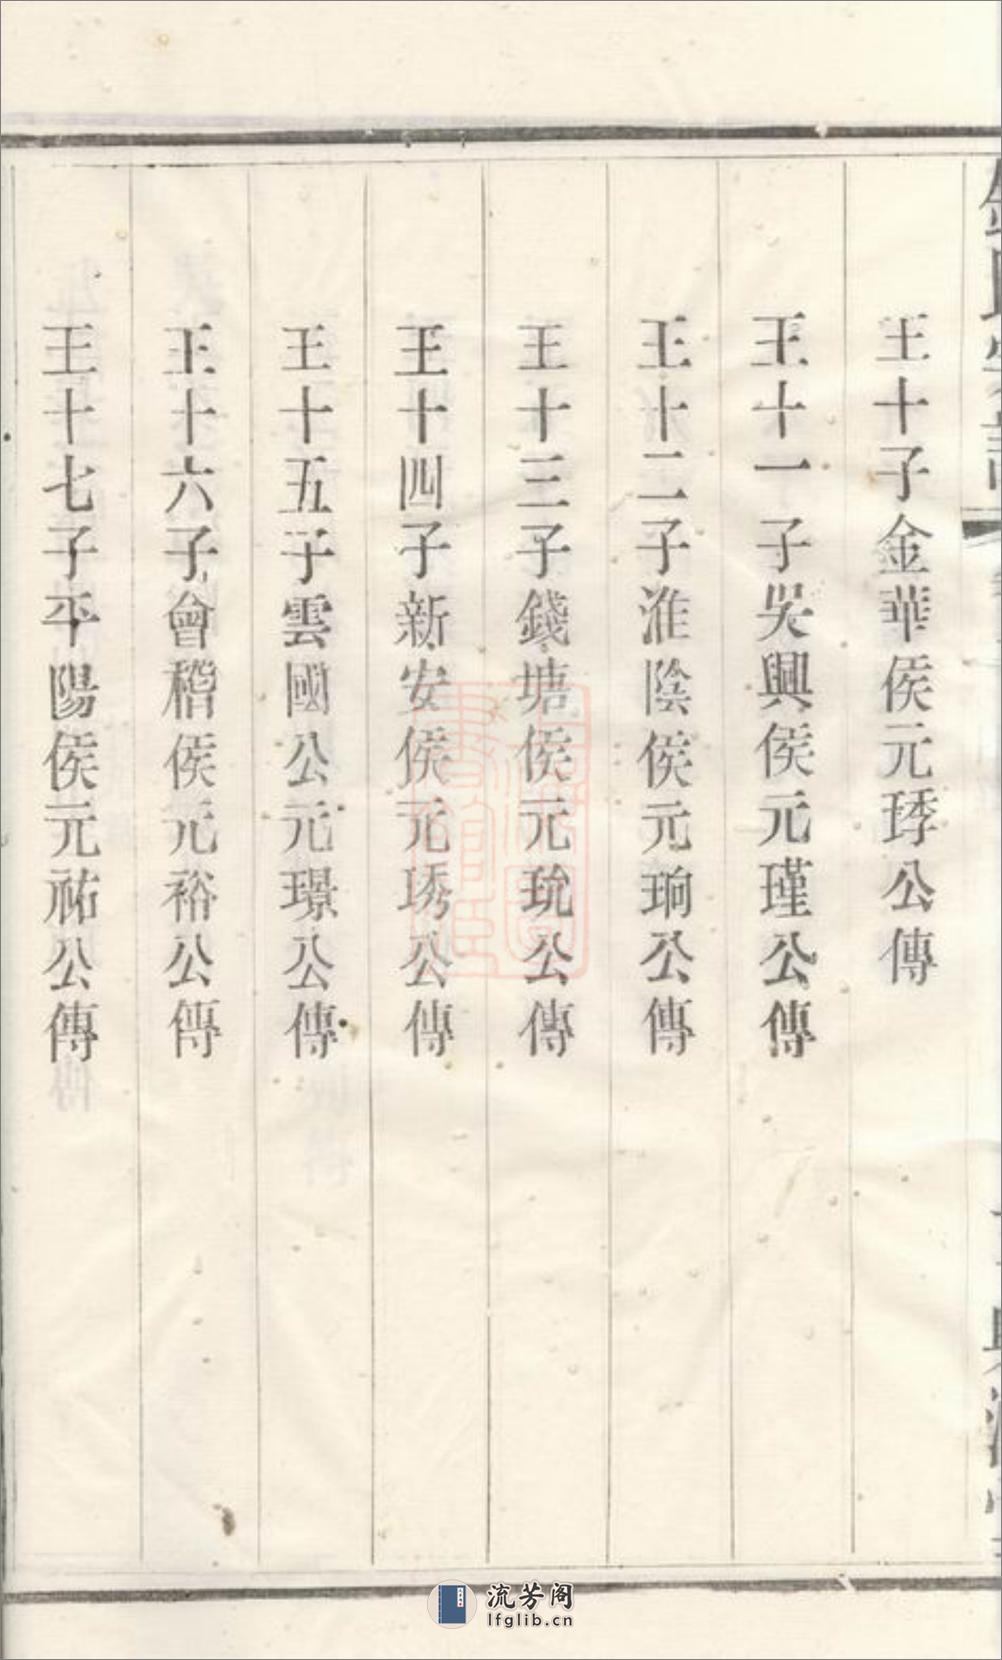 王十子金華侯元琇公傳
王十一子吳興侯元瑾公傳
王十二子淮陰侯元珦公傳
王十三子錢塘侯元㺬公傳
王十四子新安侯元琇公傳
王十五子雲國公元璟公傳
王十六子會稽侯元裕公傳
王十七子平陽侯元祐公傳
流芳阁
lfglib.cn